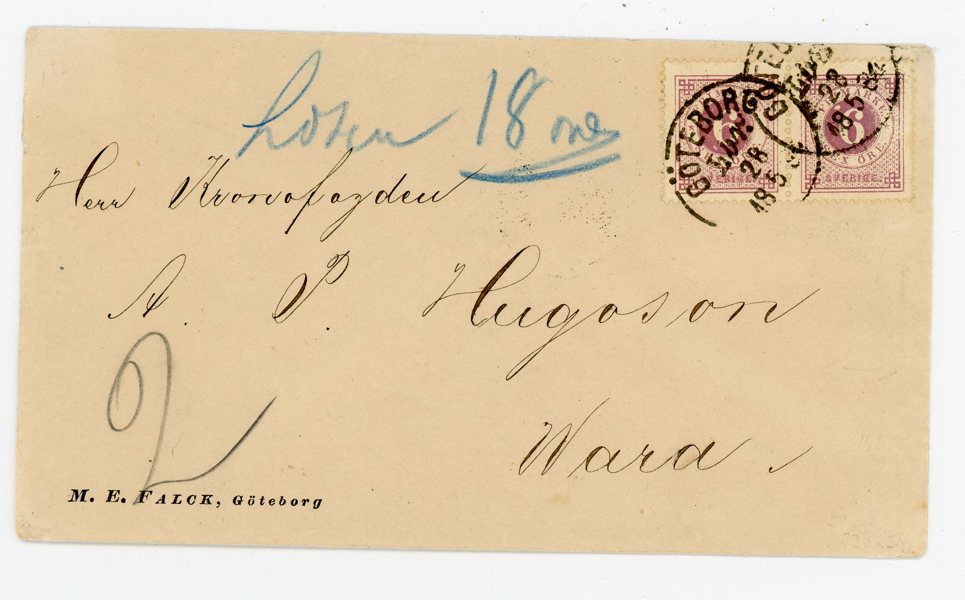 Lösen 18 öre
Herr Kronofogden
A. P. Hugoson
Wara.
2
M. E. FALCK, Göteborg
GÖTEBORG
28
5
18
28
5 84
18
6
6
SEX ÖRE.
SVERIGE.
SVERIGE.